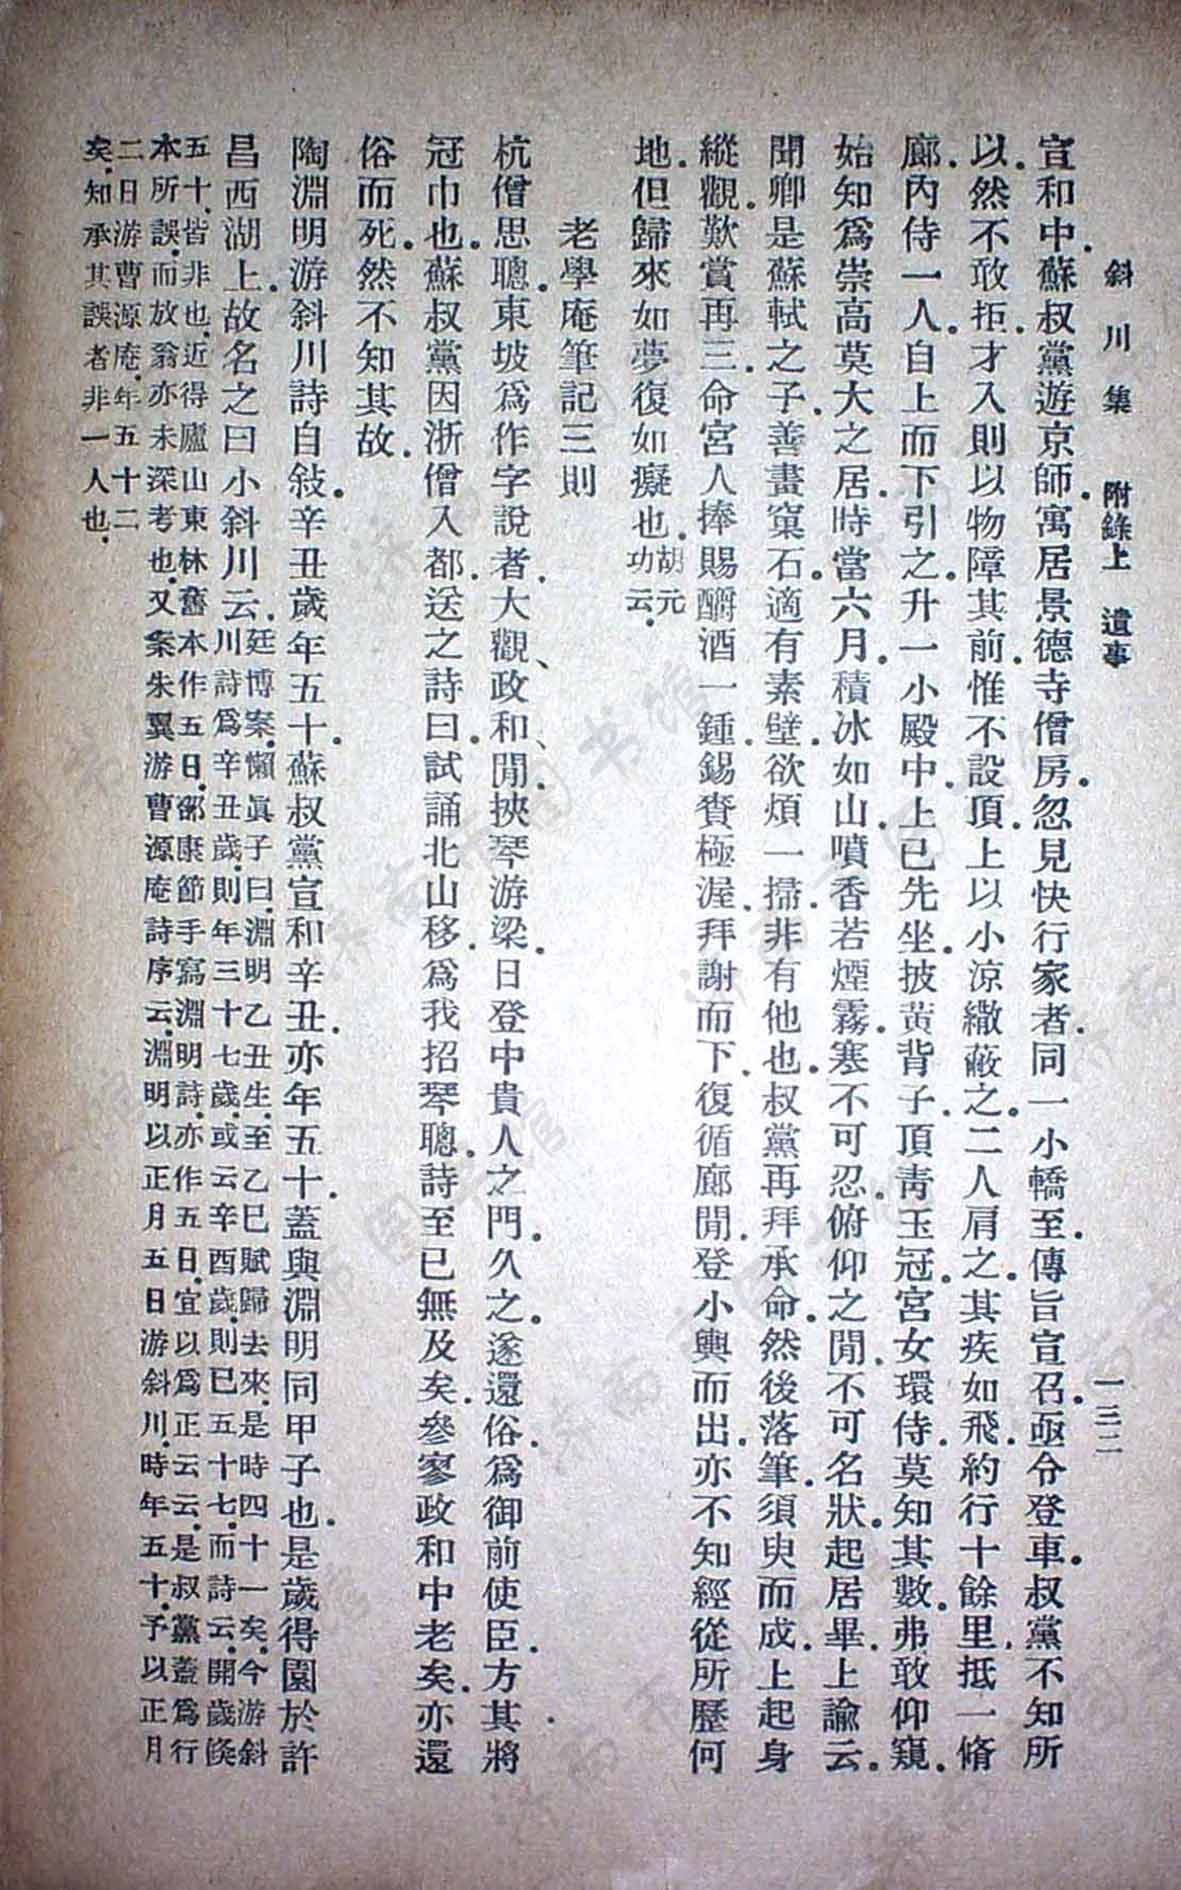 斜川集　附錄上　遺事　一三二
宣和中．蘇叔黨遊京師．寓居景德寺僧房．忽見快行家者．同一小轎至．傳旨宣召．亟令登車．叔黨不知所
以．然不敢拒．才入則以物障其前．惟不設頂．上以小涼繖蔽之．二人肩之．其疾如飛．約行十餘里．抵一脩
廊．內侍一人．自上而下引之．升一小殿中．上已先坐．披黃背子．頂青玉冠．宮女環侍．莫知其數．弗敢仰窺．
始知爲崇高莫大之居．時當六月．積冰如山．噴香若煙霧．寒不可忍．俯仰之閒．不可名狀．起居畢．上諭云．
聞卿是蘇軾之子．善畫窠石．適有素壁．欲煩一掃．非有他也．叔黨再拜承命．然後落筆．須臾而成．上起身
縱觀．歎賞再三．命宮人捧賜酹酒一鍾．錫賚極渥．拜謝而下．復循廊閒．登小輿而出．亦不知經從所歷何
地．但歸來如夢復如癡也．胡元功云．
老學庵筆記三則
杭僧思聰．東坡爲作字說者．大觀、政和、閒．挾琴游梁．日登中貴人之門．久之．遂還俗．爲御前使臣．方其將
冠巾也．蘇叔黨因浙僧入都．送之詩曰．試誦北山移．爲我招琴聰．詩至已無及矣．參寥政和中老矣．亦還
俗而死．然不知其故．
陶淵明游斜川詩自敍．辛丑歲年五十．蘇叔黨宣和辛丑．亦年五十．蓋與淵明同甲子也．是歲得園於許
昌西湖上．故名之曰小斜川云．
廷博案．懶眞子曰．淵明乙丑生．至乙巳賦歸去來．是時四十一矣．今游斜
川詩爲辛丑歲．則年三十七歲．或云辛酉歲．則已五十七．而詩云．開歲倏
五十．皆非也．近得廬山東林舊本作五日．邵康節手寫淵明詩．亦作五日．宜以爲正云云．是叔黨蓋爲行
本所誤．而放翁亦未深考也．又案朱翼游曹源庵詩序云．淵明以正月五日游斜川．時年五十．予以正月
二日游曹源庵．年五十二
矣．知承其誤者非一人也．